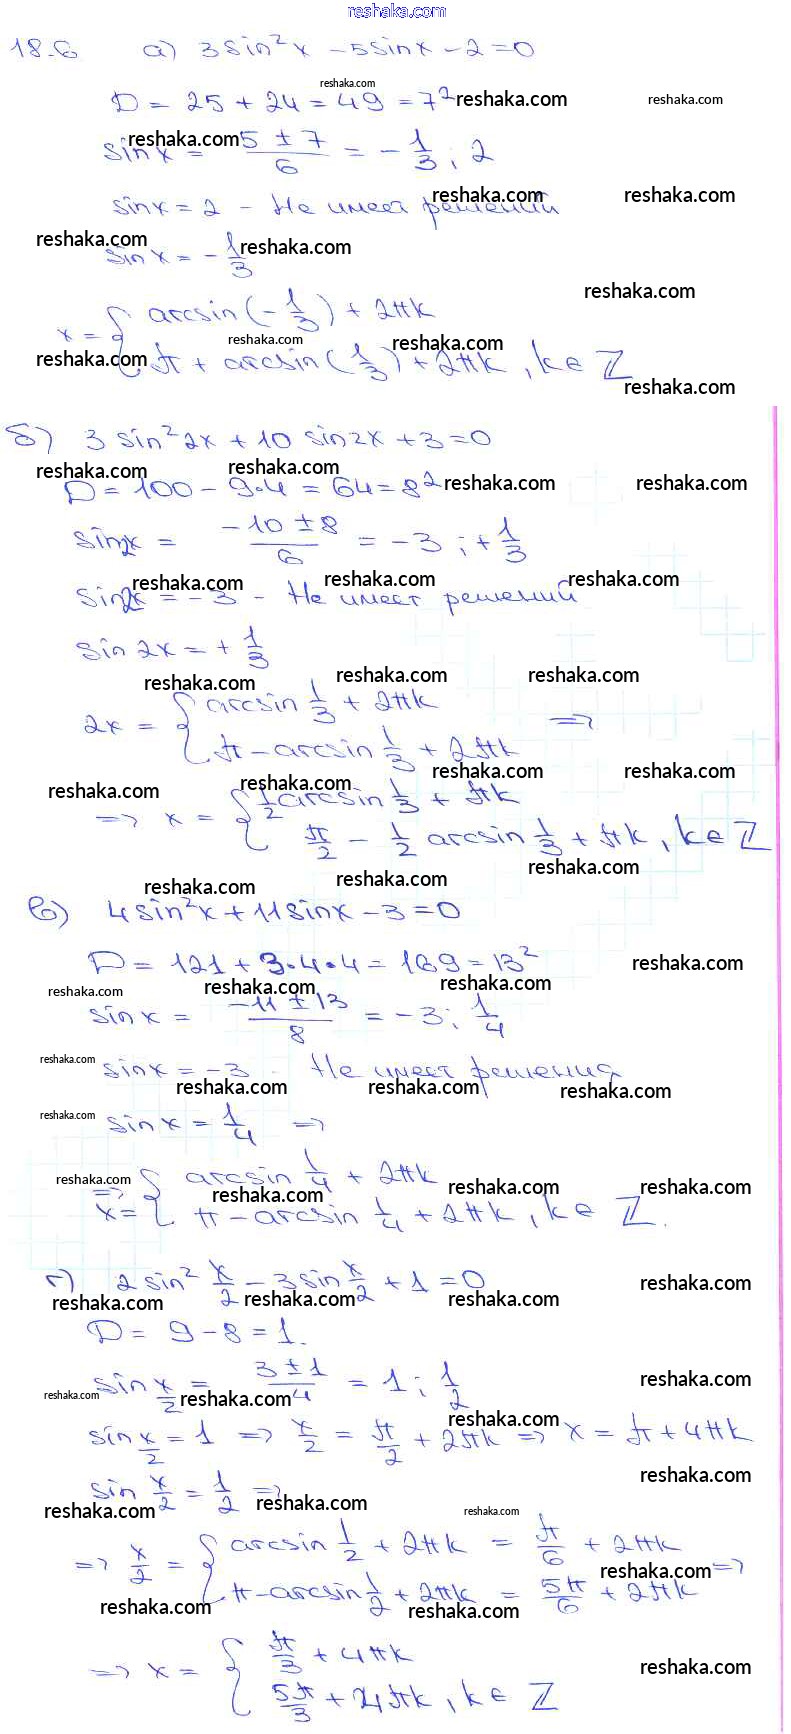 reshaka.com
18.6 а) 3sin²x - 5sinx - 2 = 0
reshaka.com
D = 25 + 24 = 49 = 7² reshaka.com reshaka.com
reshaka.com
sinx = (5 ± 7)/6 = -1/3 ; 2
reshaka.com reshaka.com
sinx = 2 - Не имеет решений
reshaka.com reshaka.com
sinx = -1/3
reshaka.com
x = { arcsin(-1/3) + 2πk
reshaka.com reshaka.com
reshaka.com π + arcsin(1/3) + 2πk, k∈Z
reshaka.com
б) 3 sin²2x + 10 sin2x + 3 = 0
reshaka.com reshaka.com
D = 100 - 9·4 = 64 = 8² reshaka.com reshaka.com
sin2x = (-10 ± 8)/6 = -3 ; +1/3
reshaka.com reshaka.com reshaka.com
sin2x = -3 - Не имеет решений
sin2x = + 1/3
reshaka.com reshaka.com reshaka.com
2x = { arcsin 1/3 + 2πk =>
π - arcsin 1/3 + 2πk
reshaka.com reshaka.com
reshaka.com reshaka.com
=> x = { 1/2 arcsin 1/3 + πk
π/2 - 1/2 arcsin 1/3 + πk, k∈Z
reshaka.com
reshaka.com reshaka.com
в) 4sin²x + 11sinx - 3 = 0
D = 121 + 3·4·4 = 169 = 13² reshaka.com
reshaka.com reshaka.com reshaka.com
sinx = (-11 ± 13)/8 = -3 ; 1/4
reshaka.com
sinx = -3 - Не имеет решения
reshaka.com reshaka.com reshaka.com
reshaka.com
sinx = 1/4 =>
reshaka.com reshaka.com reshaka.com reshaka.com
=> x = { arcsin 1/4 + 2πk
π - arcsin 1/4 + 2πk, k∈Z.
г) 2 sin² x/2 - 3 sin x/2 + 1 = 0 reshaka.com
reshaka.com reshaka.com reshaka.com
D = 9 - 8 = 1.
sin x/2 = (3 ± 1)/4 = 1 ; 1/2 reshaka.com
reshaka.com reshaka.com
reshaka.com
sin x/2 = 1 => x/2 = π/2 + 2πk => x = π + 4πk
reshaka.com
sin x/2 = 1/2 =>
reshaka.com reshaka.com reshaka.com
=> x/2 = { arcsin 1/2 + 2πk = π/6 + 2πk
reshaka.com
π - arcsin 1/2 + 2πk = 5π/6 + 2πk =>
reshaka.com reshaka.com
=> x = { π/3 + 4πk
reshaka.com
5π/3 + 4πk, k∈Z